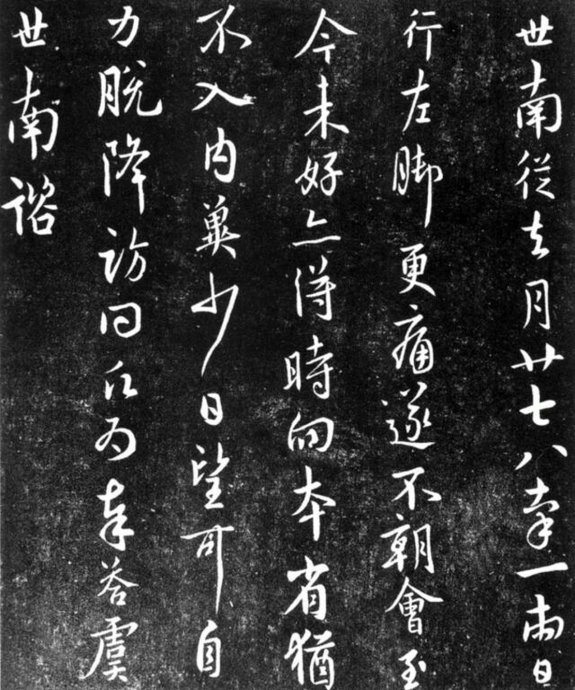 世南從去月廿七八率一兩日
行左脚更痛遂不朝會至
今未好亦得時向本省猶
不入内冀少日望可自
力脱降訪問願為奉答虞
世南諮